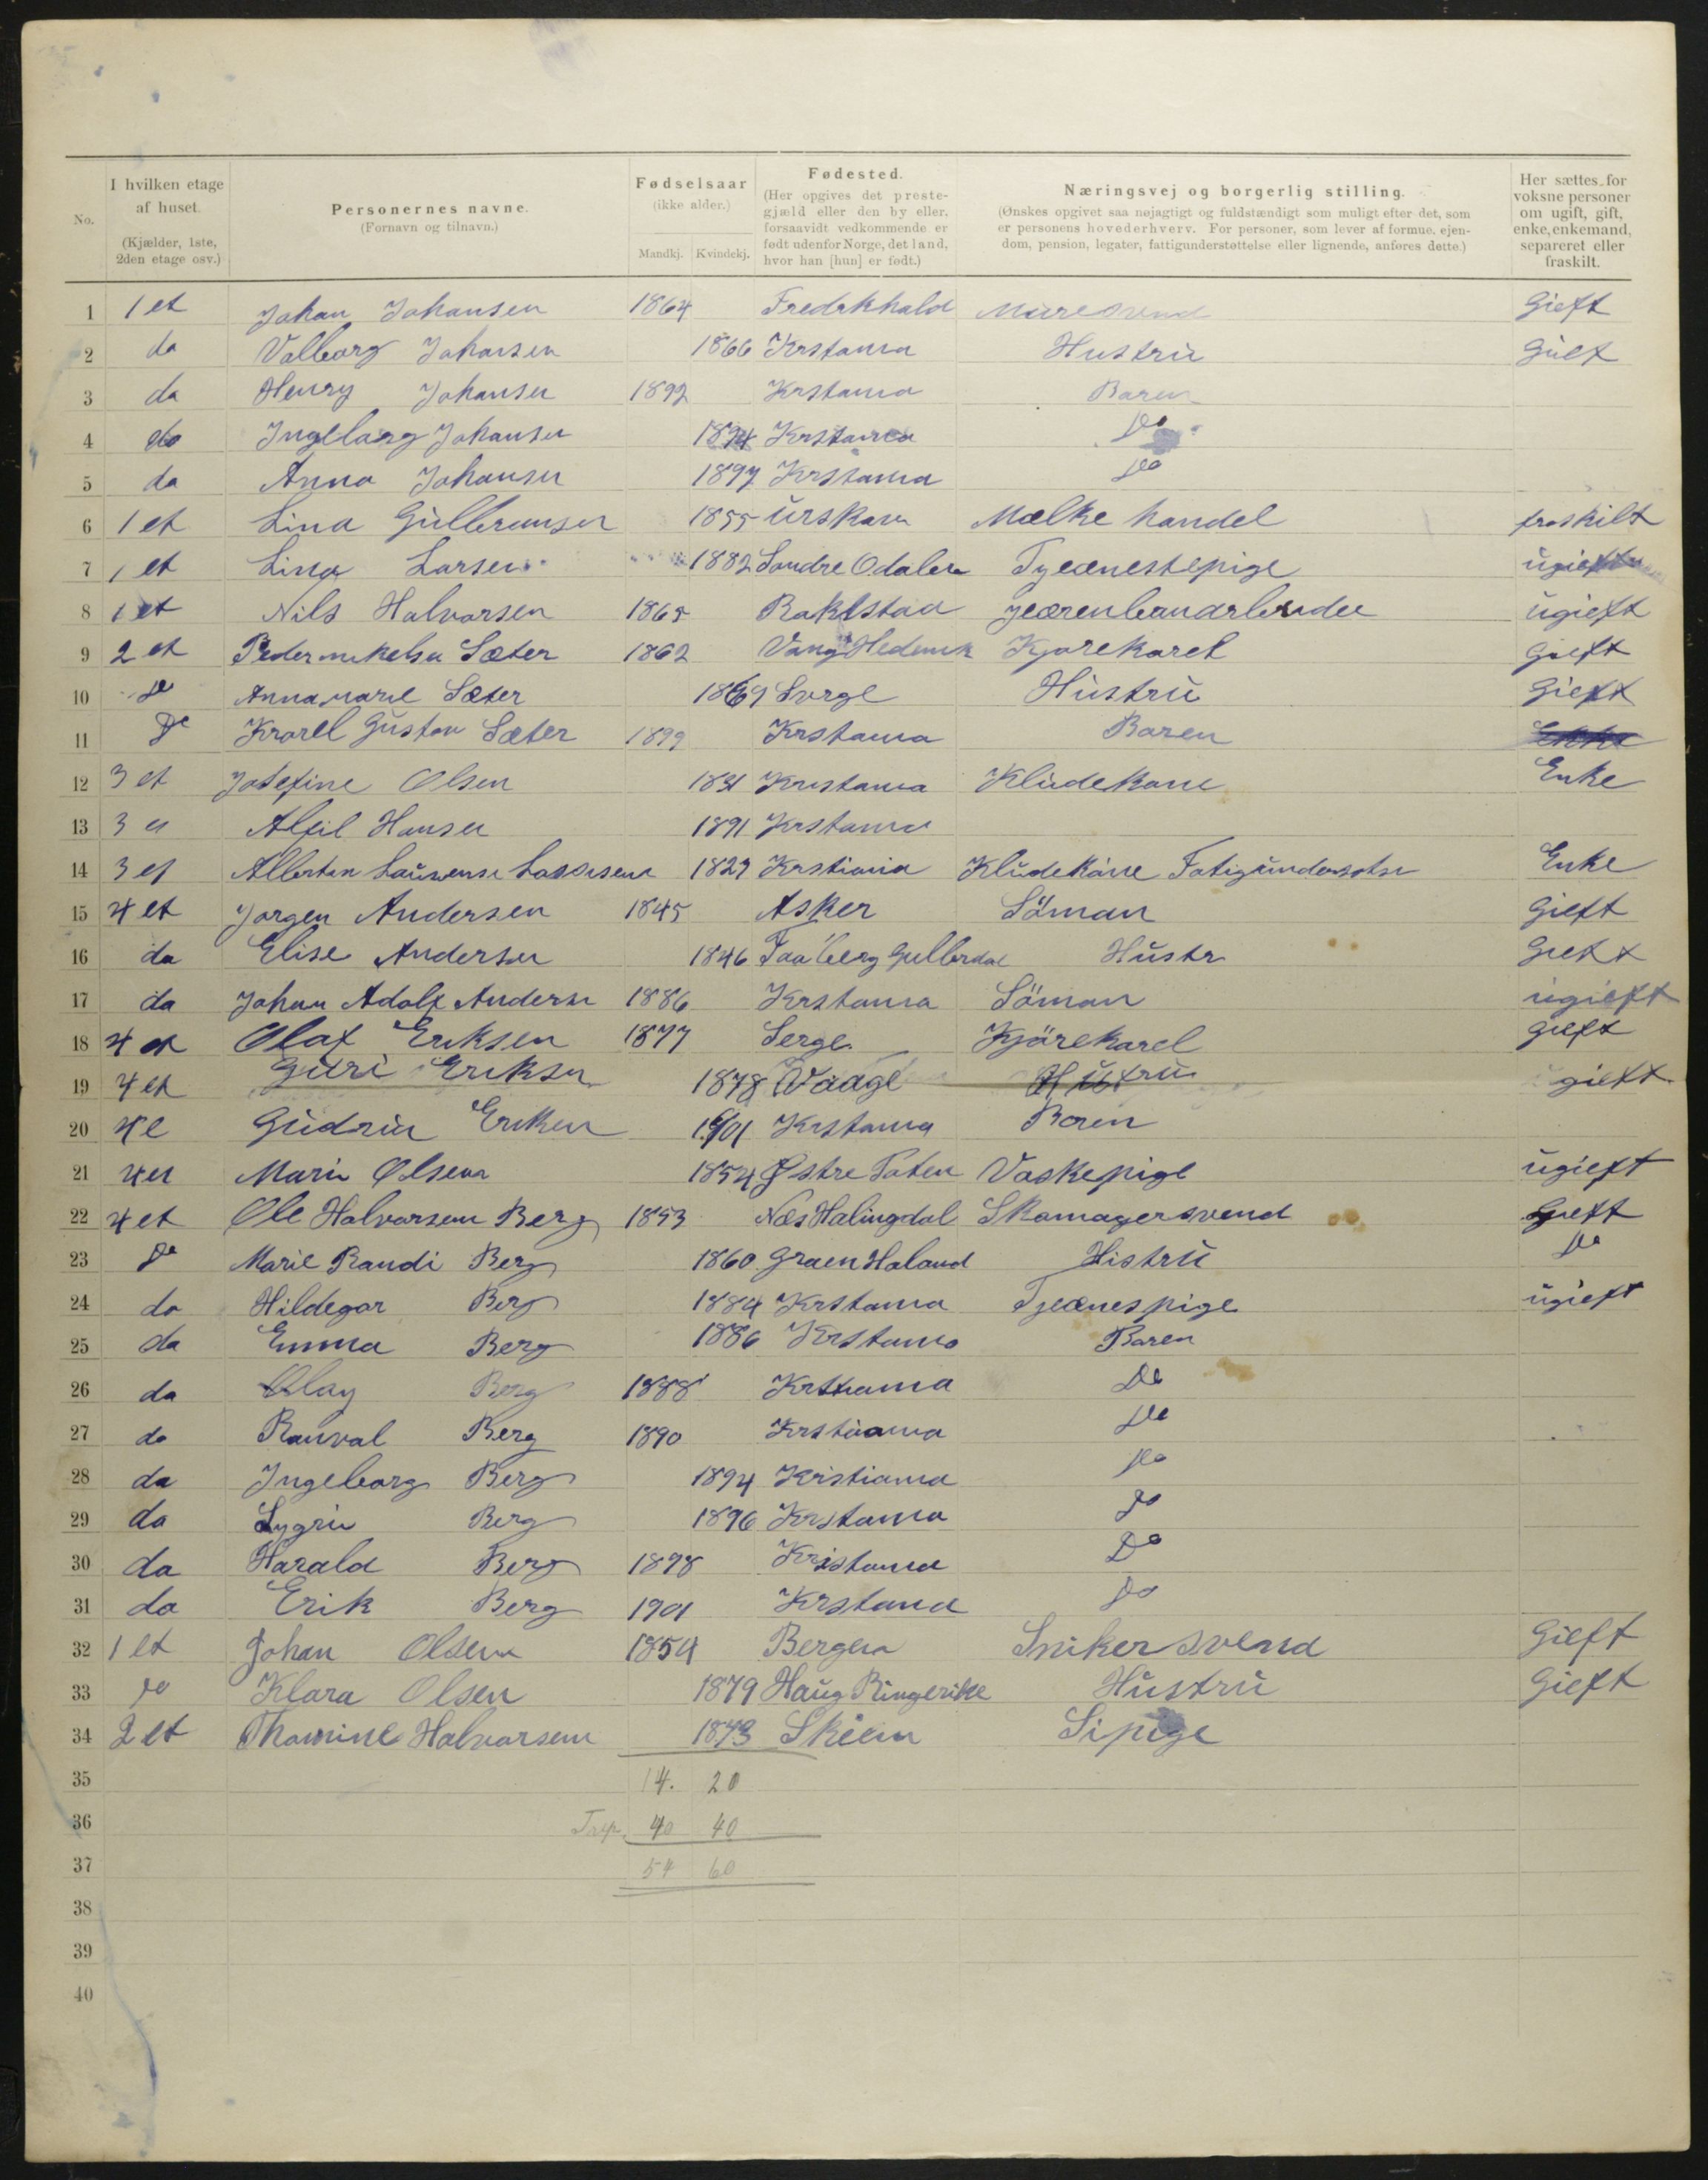 No.
I hvilken etage af huset. (Kjælder, 1ste, 2den etage osv.)
Personernes navne. (Fornavn og tilnavn.)
Fødselsaar (ikke alder.) Mandkj. Kvindekj.
Fødested. (Her opgives det prestegjæld eller den by eller, forsaavidt vedkommende er født udenfor Norge, det land, hvor han [hun] er født.)
Næringsvej og borgerlig stilling. (Ønskes opgivet saa nøjagtigt og fuldstændigt som muligt efter det, som er personens hovederhverv. For personer, som lever af formue, ejendom, pension, legater, fattigunderstøttelse eller lignende, anføres dette.)
Her sættes for voksne personer om ugift, gift, enke, enkemand, separeret eller fraskilt.
1 1 et Johan Johansen 1864 Fredrkhald Muresvend Gieft
2 do Valborg Johansen 1866 Krstania Hustru Gieft
3 do Henry Johansen 1892 Krstania Baren
4 do Ingeborg Johansen 1894 Krstania Do
5 do Anna Johansen 1897 Krstania Do
6 1 et Lina Gulbransen 1855 Urskau Mælke handel fraskilt
7 1 et Lina Larsen 1882 Søndre Odalen Tjeænestepige ugieft
8 1 et Nils Halvorsen 1865 Rakkstad ugieft
9 2 et Peder Mikelsen Sæter 1862 Vang Hedmk Kjorekarel Gieft
10 Do Anna Marie Sæter 1869 Sverge Hustru Gieft
11 Do Karel Gustav Sæter 1899 Krstania Baren
12 3 et Josefine Olsen 1831 Kristania Kludekone Enke
13 3 et Alfil Hansen 1891 Krstania
14 3 et 1827 Krstiania Kludekone Enke
15 4 et Jorgen Andersen 1845 Asker Söman Gieft
16 do Elise Andersen 1846 Faaberg Gulbrdal Hustr Gieft
17 do Johan Adolf Anderse 1886 Krstania Söman ugieft
18 4 et Olaf Eriksen 1877 Serge Kjörekarel Gieft
19 4 et Guri Eriksen 1878 Vaage Hustru gieft
20 4 e Gudrun Eriksen 1901 Krstania Baren
21 4 et Marie Olsen 1854 Østre Toten Vaskepige ugieft
22 4 et Ole Halvorsen Berg 1853 Næs Halingdal Skomagersvend Gieft
23 Do Marie Randi Berg 1860 Graen Haland Histru Do
24 do Hildegar Berg 1884 Krstania Tjeænespige ugieft
25 do Emma Berg 1886 Krstania Baren
26 do Olay Berg 1888 Krstiania Do
27 do Ranval Berg 1890 Krstiania Do
28 do Ingeborg Berg 1894 Kristiania Do
29 do Sygru Berg 1896 Krstania Do
30 do Harald Berg 1898 Kristania Do
31 do Erik Berg 1901 Krstania Do
32 1 et Johan Olsen 1854 Bergen Snikersvend Gieft
33 Do Klara Olsen 1879 Haug Ringerike Hustru Gieft
34 2 et Thomine Halvorsen 1873 Skien Sipige
35 14. 20
36 Trsp. 40 40
37 54 60
38
39
40